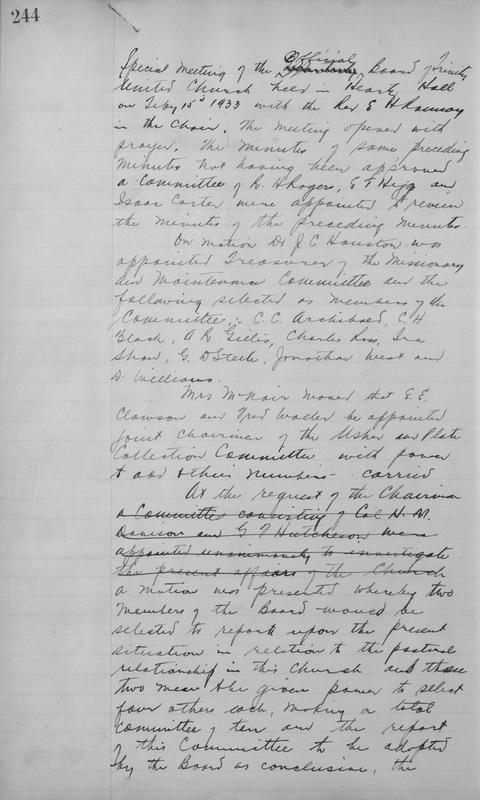 244
Special Meeting of the Official Board of Trinity
United Church held in Heartz Hall
on Feby 15th 1933 with the Rev E H Ramsay
in the Chair. The Meeting opened with
prayer. The Minutes of some preceding
Minutes not having been approved
a Committee of R. H Rogers, E F Higgs and
Isaac Carter were appointed to review
the Minutes of the preceding Minutes.
On Motion Dr J C Houston was
appointed Treasurer of the Missionary
and Maintenance Committee and the
following selected as Members of the
Committee:- C. C. Archibald, C. H
Black, A R Gillis, Charles Ross, Ira
Shaw, G. D Steele, Jonathan West and
D. Williams.
Mrs McNair moved that E. E.
Clawson and Fred Waller be appointed
joint Chairman of the Usher and Plate
Collection Committee with power
to add other numbers - carried
At the request of the Chairman
a Committee consisting of Col H. M.
Davison and G F Hutcheson were
appointed unanimously to investigate
the present affairs of the Church
a motion was presented whereby two
Members of the Board would be
selected to report upon the present
situation in relation to the pastoral
relationship in this Church and these
two men be given power to select
four others each, making a total
committee of ten and the report
of this Committee to be adopted
by the Board as conclusive, the